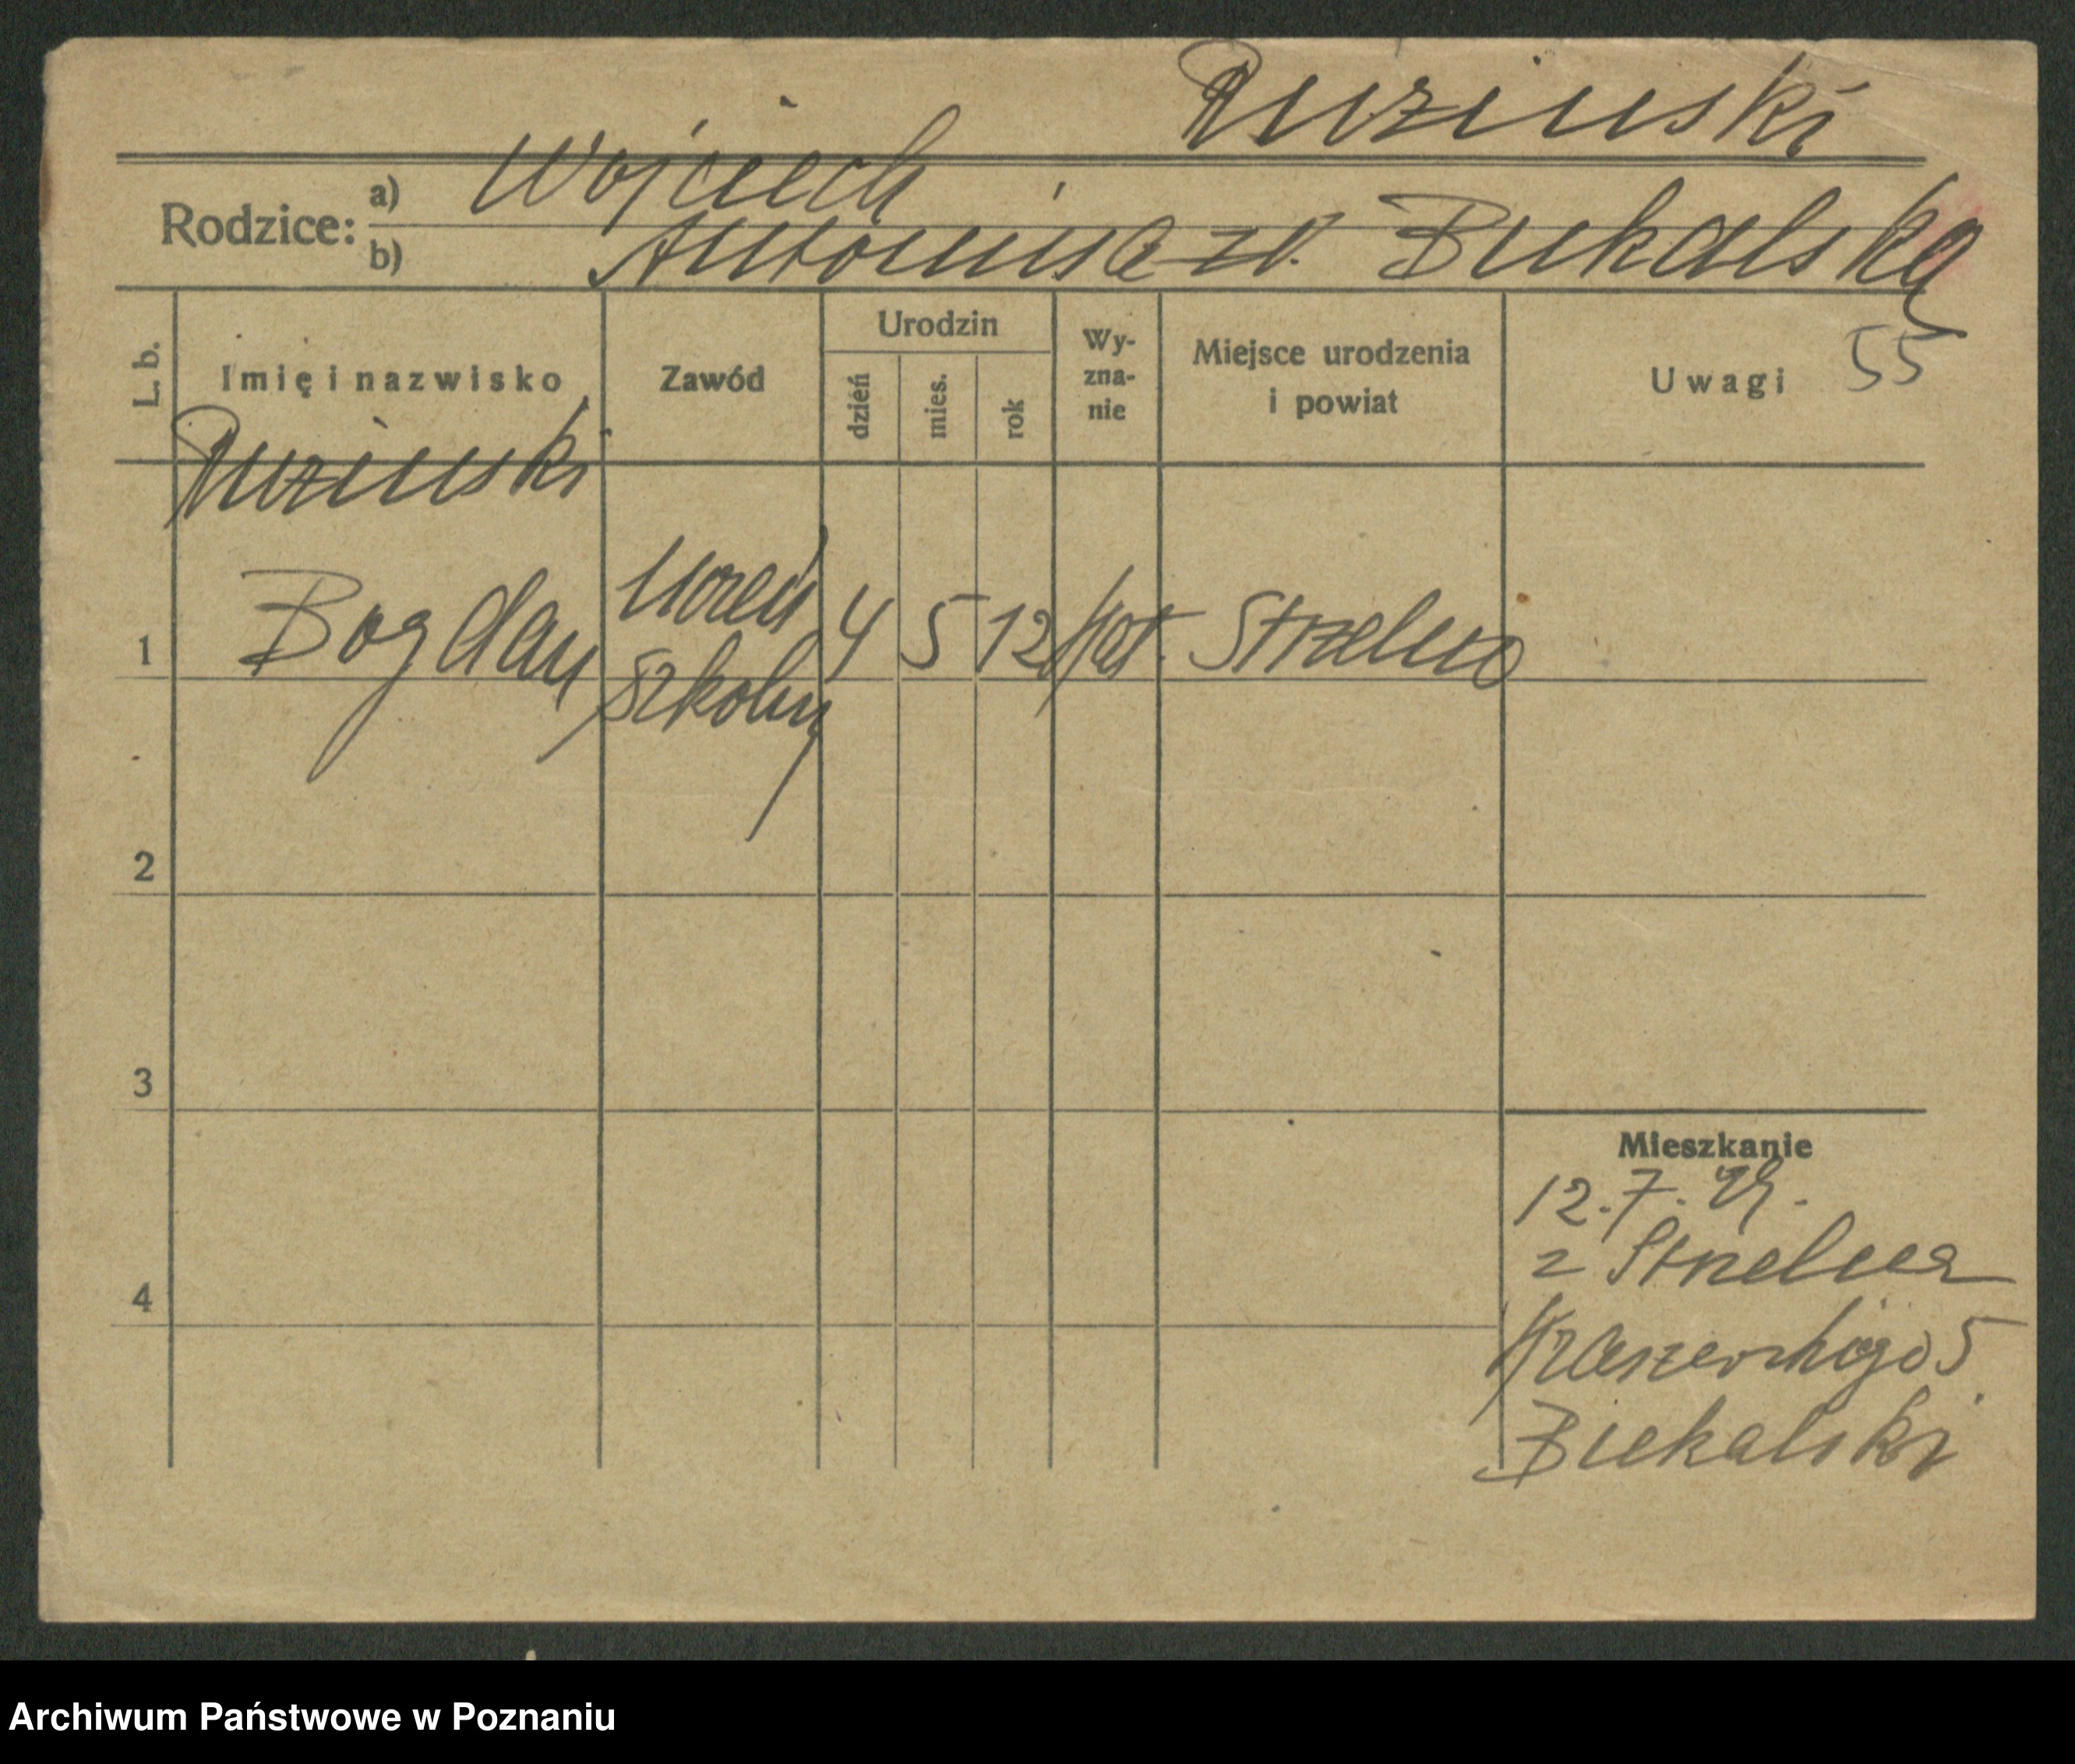 Ruziński
Rodzice:
a) Wojciech
b) Antonina zd. Bukalska
L. b.
Imię i nazwisko
Zawód
Urodzin
dzień
mies.
rok
Wy-
zna-
nie
Miejsce urodzenia
i powiat
Uwagi
55
Ruziński
1 Bogdan
uczeń
szkolny
4 5 12 kat. Strzelno
2
3
4
Mieszkanie
12.7.
z Strzelna
5
Bukalski
Archiwum Państwowe w Poznaniu